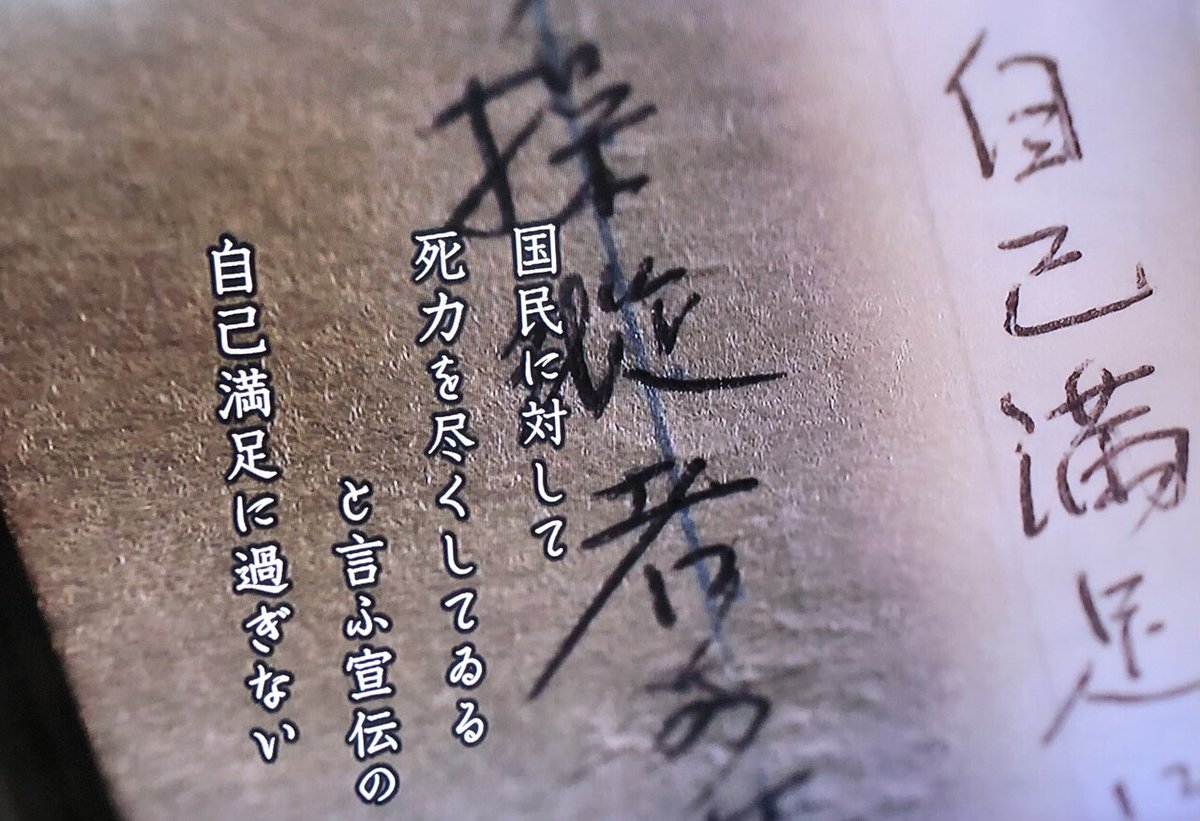 自己満足に
国民に対して
死力を尽くしてゐる
と言ふ宣伝の
自己満足に過ぎない